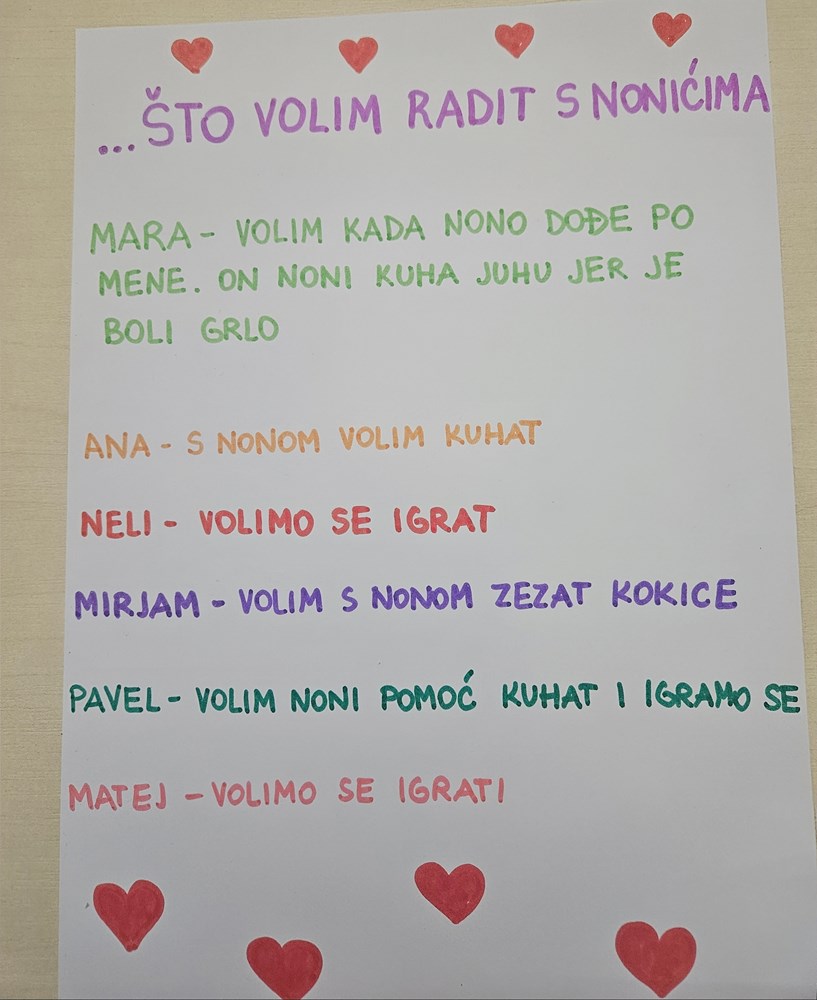 ...ŠTO VOLIM RADIT S NONIĆIMA
MARA - VOLIM KADA NONO DOĐE PO
MENE. ON NONI KUHA JUHU JER JE
BOLI GRLO
ANA - S NONOM VOLIM KUHAT
NELI - VOLIMO SE IGRAT
MIRJAM - VOLIM S NONOM ZEZAT KOKICE
PAVEL - VOLIM NONI POMOĆ KUHAT I IGRAMO SE
MATEJ - VOLIMO SE IGRATI